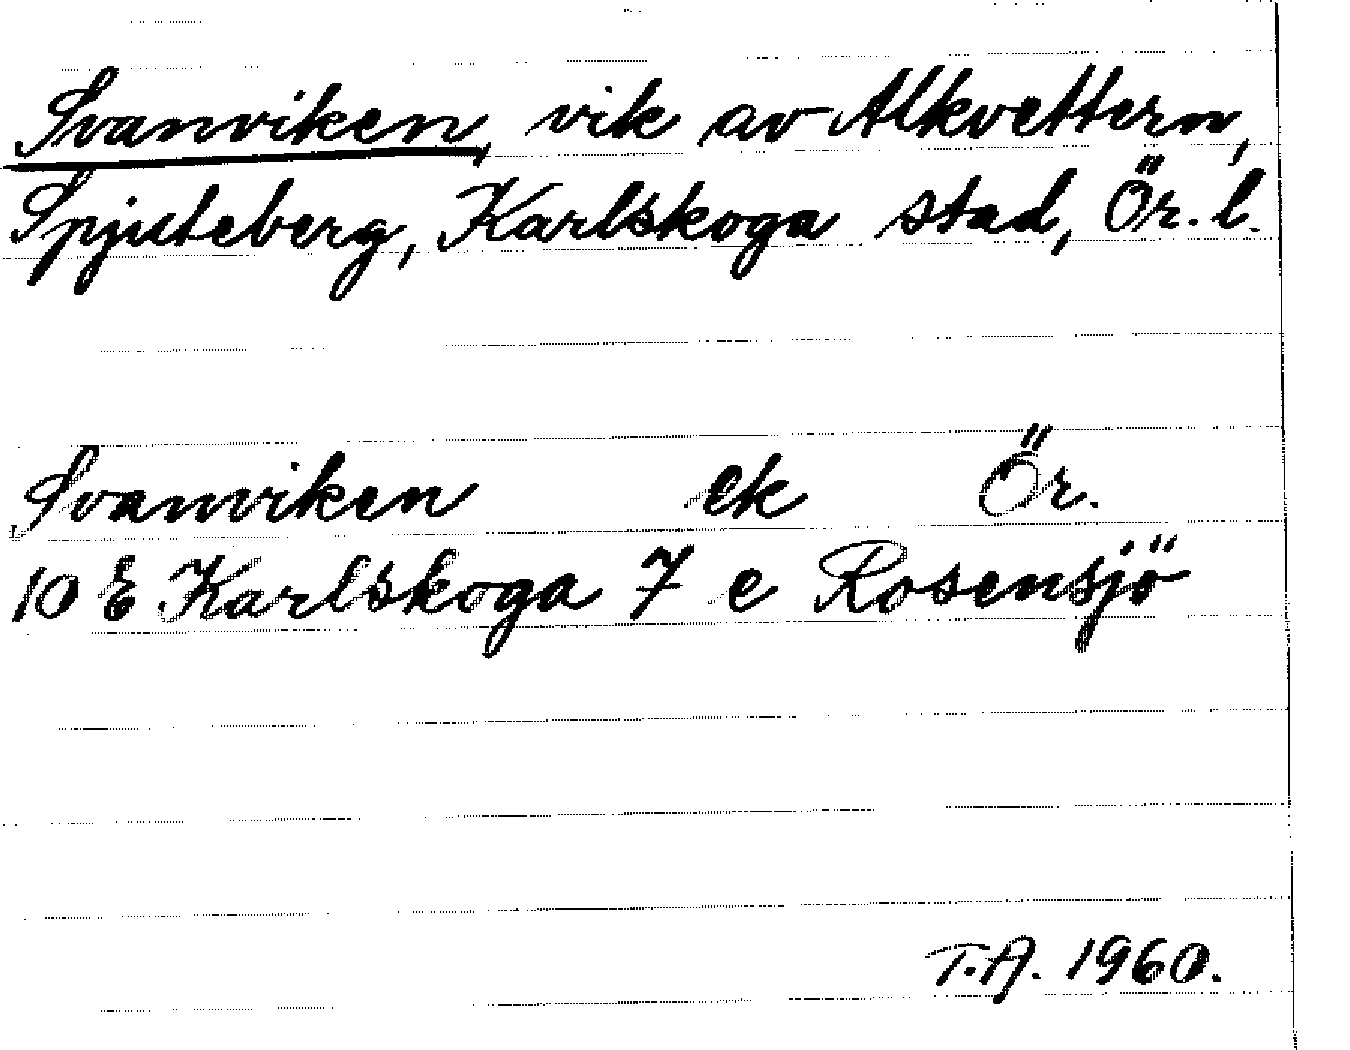 Svanviken, vik av Alkvettern,
Spjuteberg, Karlskoga stad, Ör. l.
Svanviken ek Ör.
10 E Karlskoga 7 e Rosensjö
T.A. 1960.